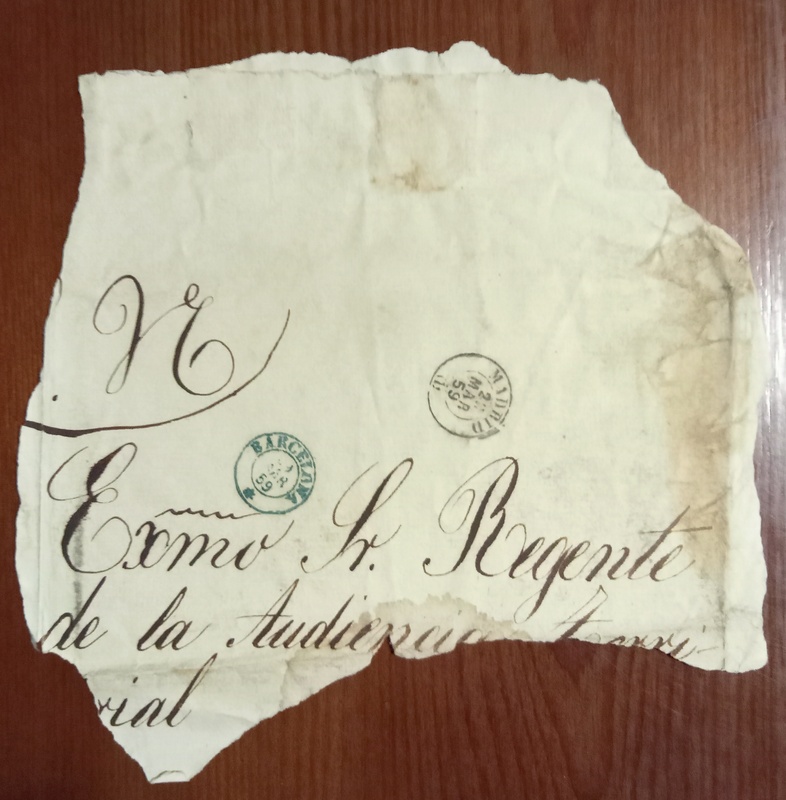 VE
MADRID
MAR
59
BARCELONA
59
Exmo Sr. Regente
de la Audiencia Terri-
rial